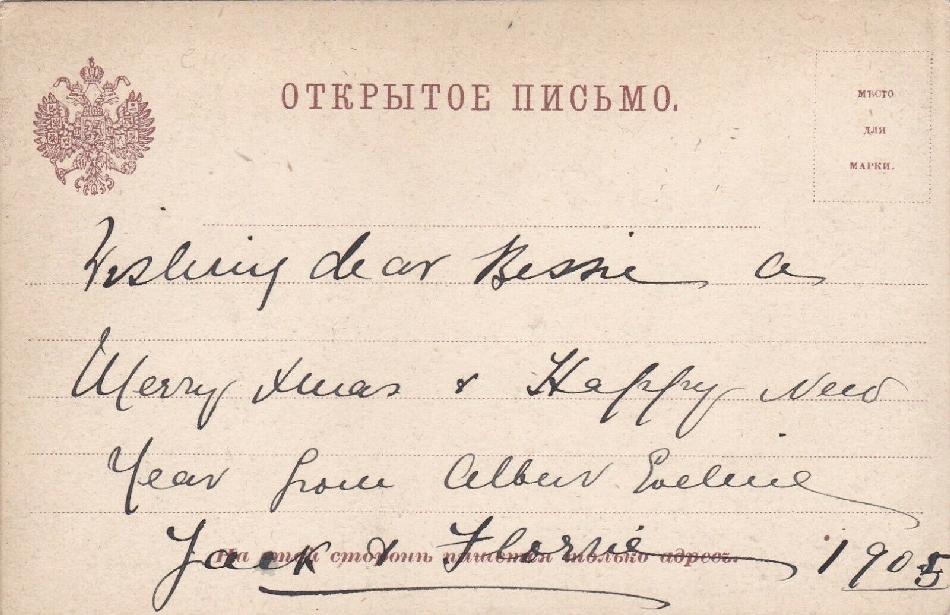 ОТКРЫТОЕ ПИСЬМО.
МѢСТО
ДЛЯ
МАРКИ.
Wishing dear Bessie a
Merry Xmas & Happy New
Year from Albert Eveline
Jack & Florrie 1905
На этой сторонѣ пишется только адресъ.